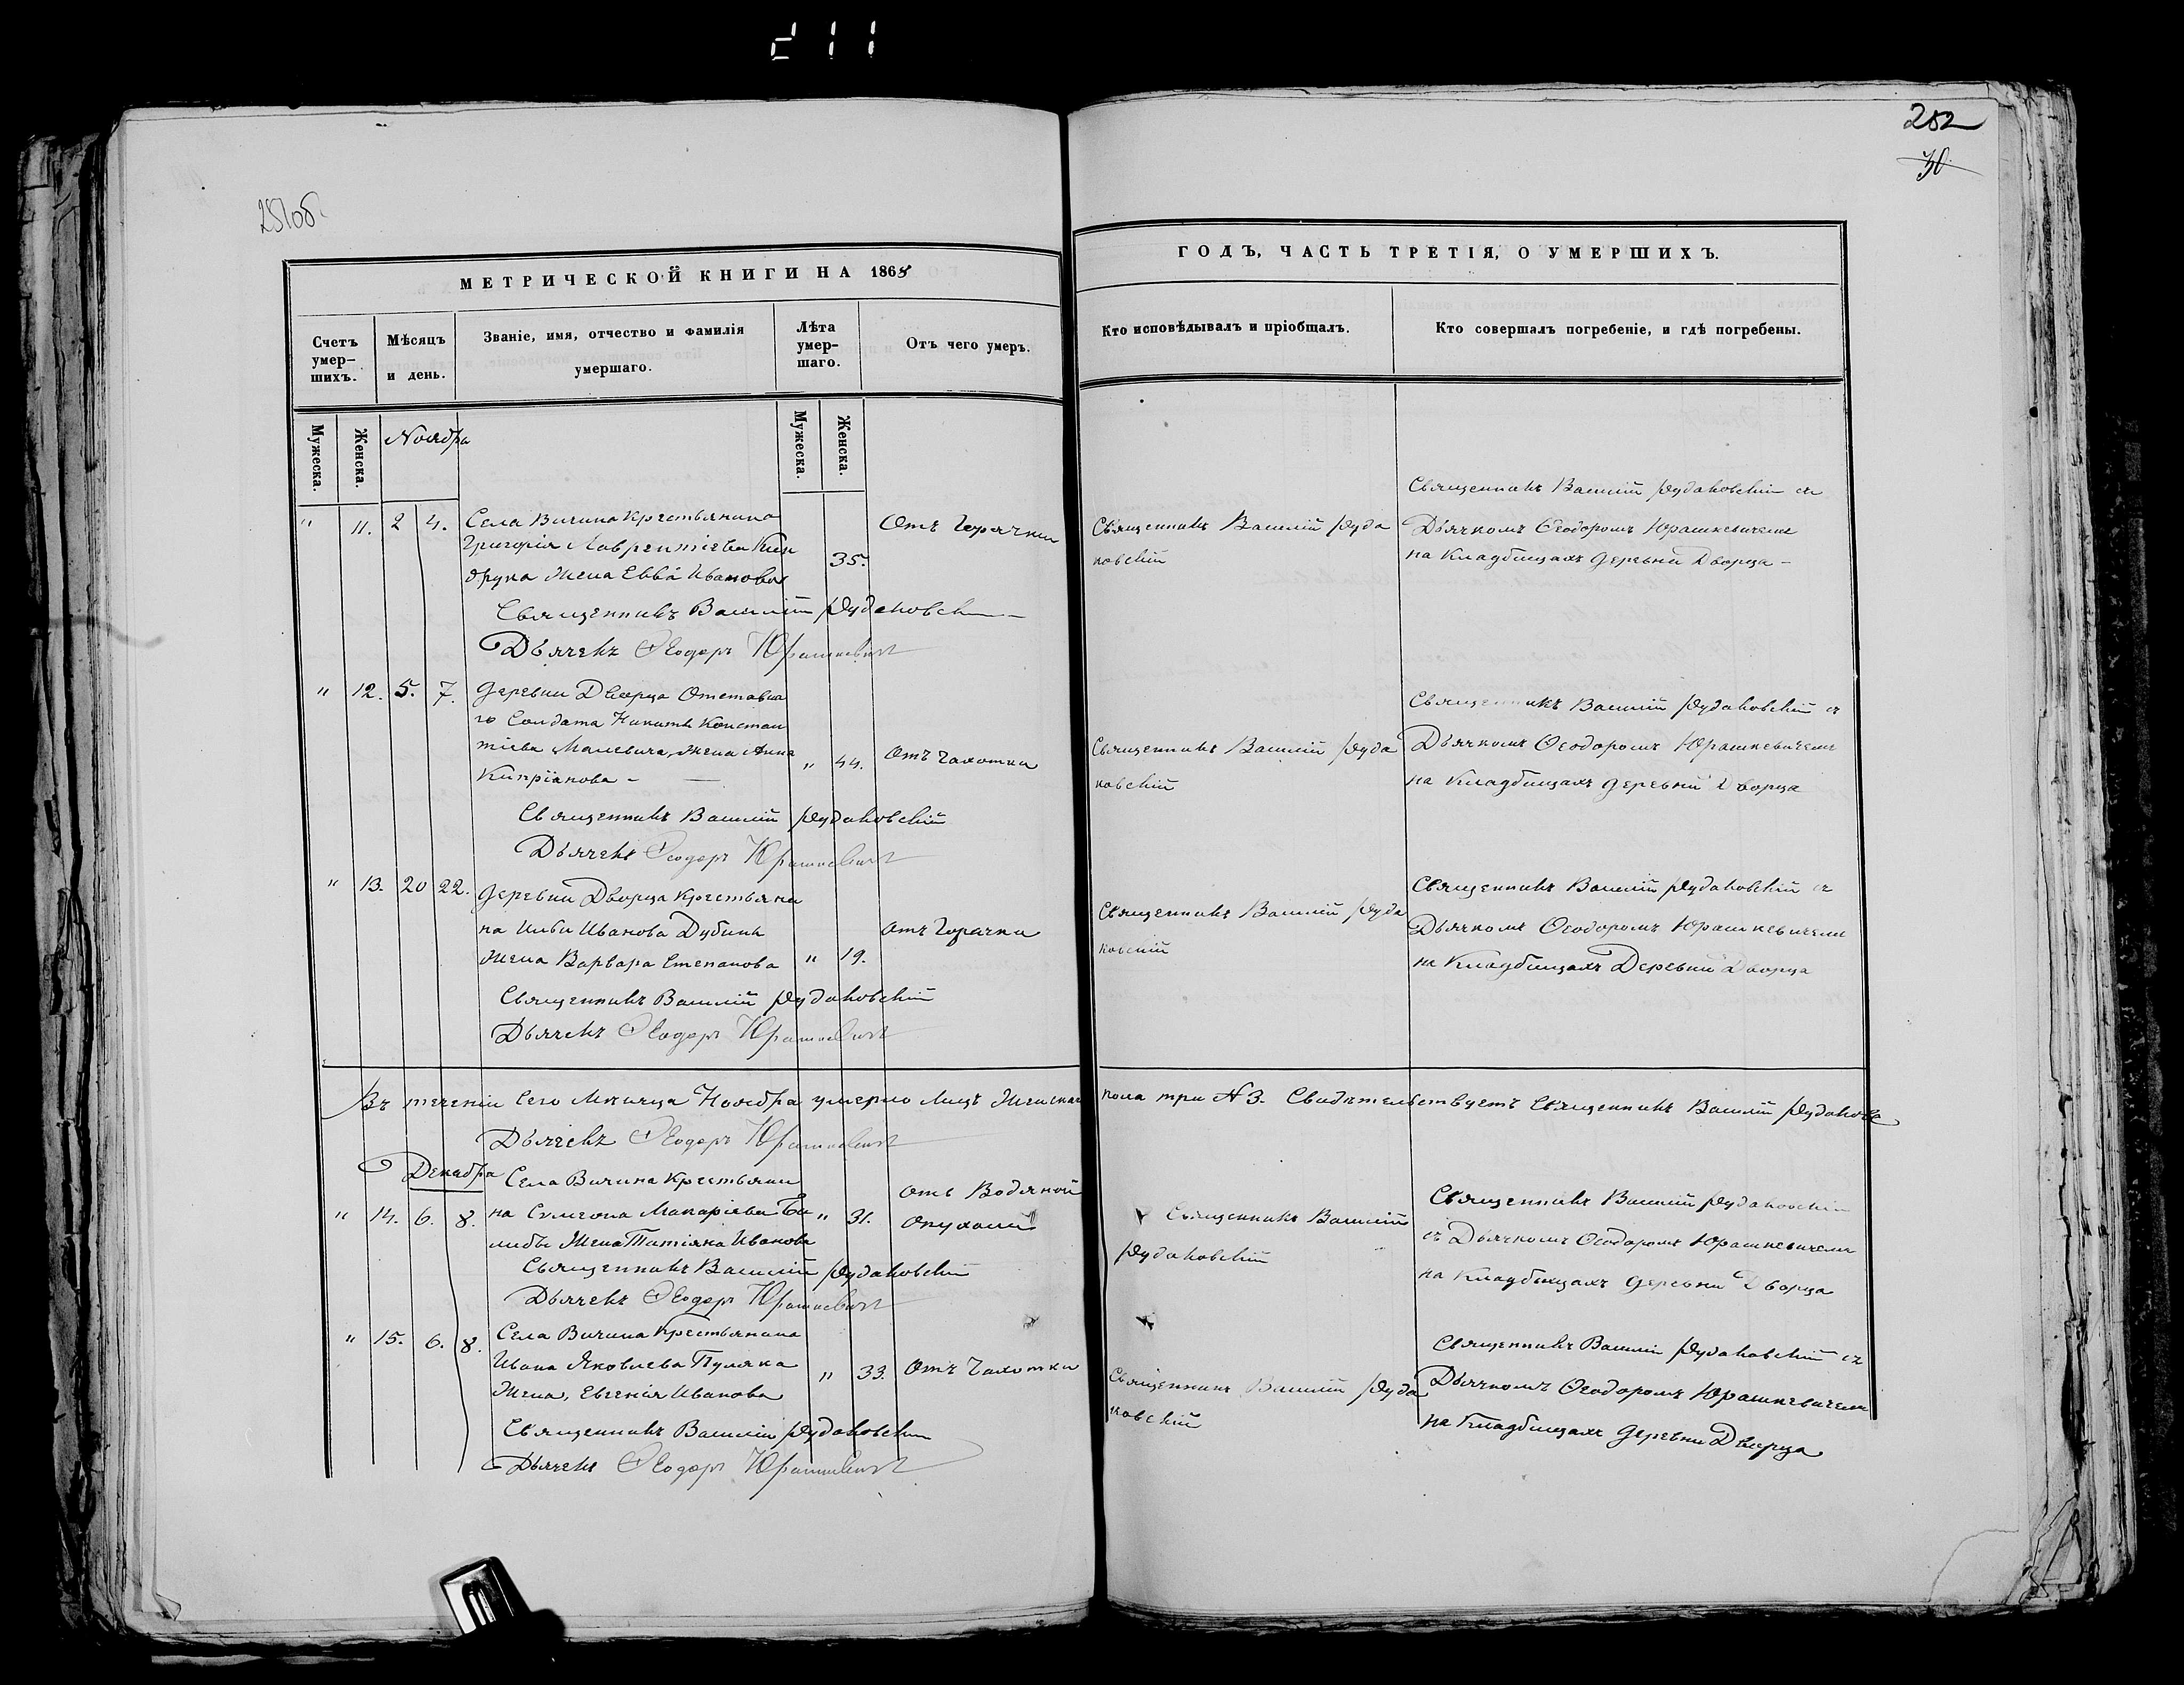 211
282
30
251об.
МЕТРИЧЕСКОЙ КНИГИ НА 1868
ГОДЪ, ЧАСТЬ ТРЕТІЯ, О УМЕРШИХЪ.
Счетъ умер-
шихъ.
Мѣсяцъ
и день.
Званіе, имя, отчество и фамилія
умершаго.
Лѣта
умер-
шаго.
Отъ чего умеръ.
Кто исповѣдывалъ и пріобщалъ.
Кто совершалъ погребеніе, и гдѣ погребены.
Мужеска.
Женска.
Ноября
Мужеска.
Женска.
" 11. 2 4.
Села Вичина Крестьянина
Григорія Лаврентіева Кин
друка жена Евва Иванова
35.
Отъ Горячки
Священникъ Василій Руда
ковскій
Священникъ Василій Рудаковскій съ
Дьячкомъ Ѳеодоромъ Юрашкевичемъ
на Кладбищахъ деревни Дворца -
Священникъ Василій Рудаковскій
Дьячекъ Ѳеодоръ Юрашкевичъ
" 12. 5. 7.
Деревни Дворца Отставна
го Солдата Никиты Констан
тіева Малевича, жена Анна
Кипріанова -
" 44.
Отъ чахотки
Священникъ Василій Руда
ковскій
Священникъ Василій Рудаковскій съ
Дьячкомъ Ѳеодоромъ Юрашкевичемъ
на Кладбищахъ деревни Дворца
Священникъ Василій Рудаковскій
Дьячекъ Ѳеодоръ Юрашкевичъ
" 13. 20 22.
Деревни Дворца Крестьяни
на Ильи Иванова Дубины
жена Варвара Степанова
" 19.
отъ Горячки
Священникъ Василій Руда
ковскій
Священникъ Василій Рудаковскій съ
Дьячкомъ Ѳеодоромъ Юрашкевичемъ
на Кладбищахъ Деревни Дворца
Священникъ Василій Рудаковскій
Дьячекъ Ѳеодоръ Юрашкевичъ
Въ теченіи сего мѣсяца Ноября умерло лицъ женскаго пола три № 3. Свидѣтельствуетъ Священникъ Василій Рудаковс
Дьячекъ Ѳеодоръ Юрашкевичъ
Декабря
" 14. 6. 8.
Села Вичина Крестьяни
на Сѵмеона Макаріева
жена Татіяна Иванова
" 31.
отъ Водяной
опухоли
Священникъ Василій
Рудаковскій
Священникъ Василій Рудаковскій
съ Дьячкомъ Ѳеодоромъ Юрашкевичемъ
на Кладбищахъ деревни Дворца
Священникъ Василій Рудаковскій
Дьячекъ Ѳеодоръ Юрашкевичъ
" 15. 6. 8.
Села Вичина Крестьянина
Ивана Яковлева Пуляка
жена, Евгенія Иванова
" 33.
Отъ Чахотки
Священникъ Василій Руда
ковскій
Священникъ Василій Рудаковскій съ
Дьячкомъ Ѳеодоромъ Юрашкевичемъ
на Кладбищахъ деревни Дворца
Священникъ Василій Рудаковскій
Дьячекъ Ѳеодоръ Юрашкевичъ